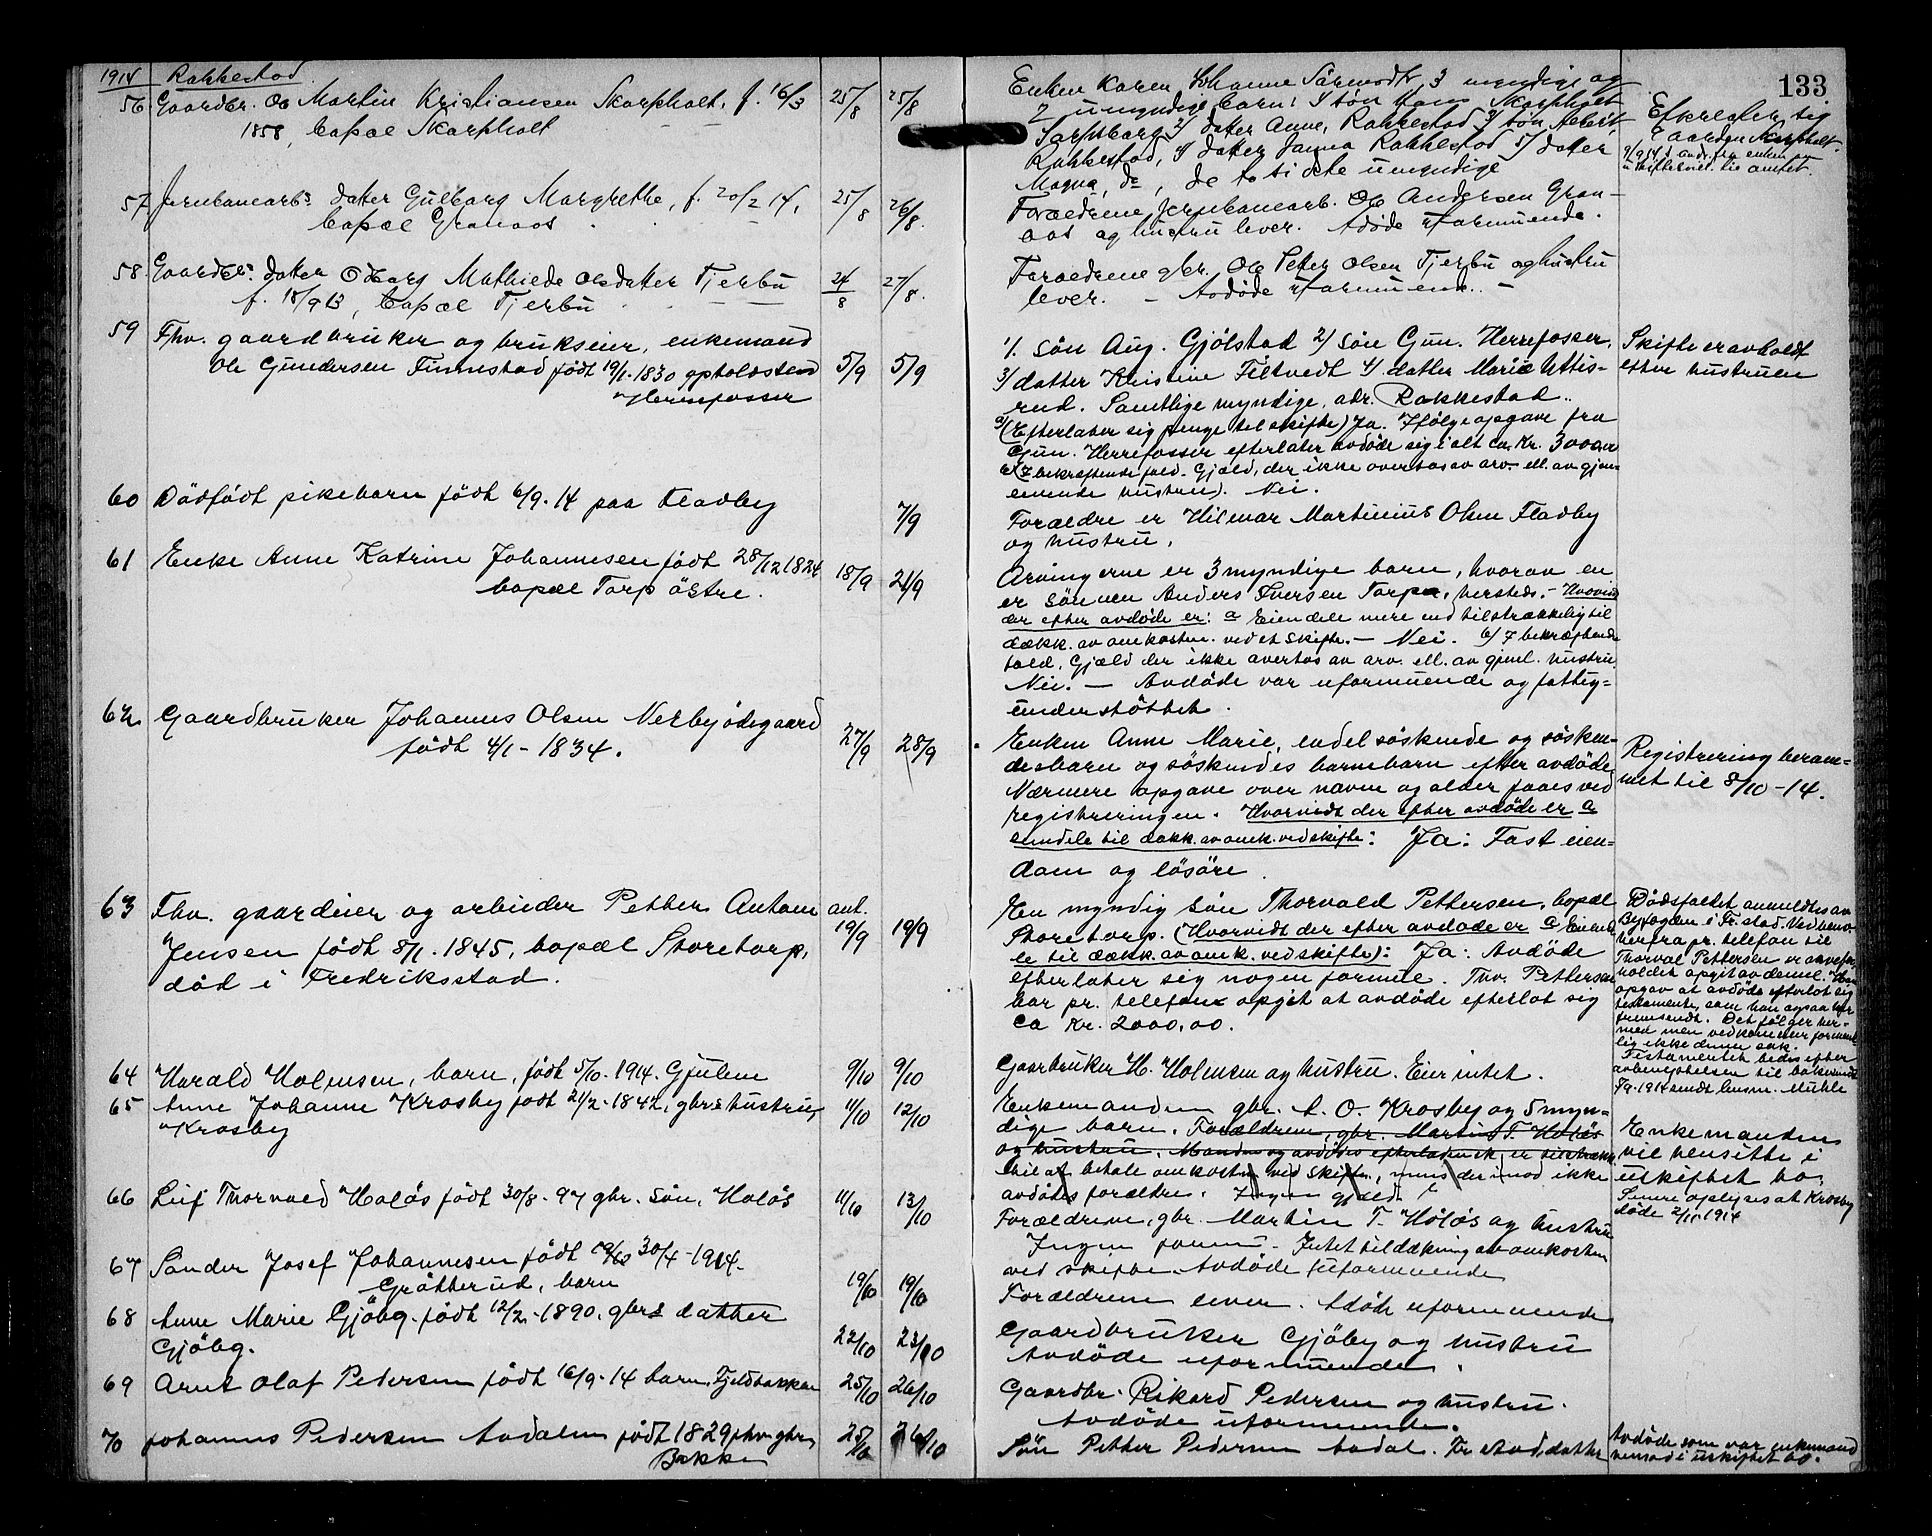 133
1914 Rakkestad.
56. Gaardbr. Ole Martin Kristiansen Skarpholt, f. 16/3
1858, bopæl Skarpholt
25/8 25/8
Enken Karen Johanne 3 myndige og
2 umyndige barn: 1/ søn Hans Skarpholt
Sarpsborg 2/ datter Anne, Rakkestad 3/ søn Albert
Rakkestad, 4/ datter Janna Rakkestad 5/ datter
Magna, do, de to sidste umyndige
Efterlater sig
Gaarden Skarpholt.
57. Jernbanearb.s datter Gulborg Margrethe, f. 20/2 14,
bopæl Granaas
25/8 26/8.
Forældrene jernbanearb. Ole Andersen Gran-
aas og hustru lever. Avdøde uformuende.
58. Gaardbr.s datter Odborg Mathilde Olsdatter Tjerbu
f. 18/9 13, bopæl Tjerbu
24/8 27/8.
Forældrene gbr. Ole Peter Olsen Tjerbu og hustru
lever. - Avdøde uformuende. -
59 Fhv. gaardbruker og brukseier, enkemand
Ole Gundersen Finnestad født 19/1-1830 opholdssted
Herrefosser
5/9 5/9
1/. søn Aug. Gjølstad 2/ søn Gun. Herrefosser.
3/ datter Kristine Filtvedt 4/ datter Marie Uttis-
rud. Samtlige myndige, adr. Rakkestad..
a/ (Efterlater sig penge til skifte) Ja. Ifølge opgave fra
Gun. Herrefosser efterlater avdøde sig i alt ca. Kr. 3000,00
b/ (I bekræftende fald. Gjæld, der ikke overtas av arv. ell. av gjen-
levende hustru). Nei.
Skifte er avholdt
efter hustruen
60 Dødfødt pikebarn født 6/9.14 paa Fladby
7/9
Forældre er Hilmar Martinius Olsen Fladby
og hustru.
61 Enke Anne Katrine Johannesen født 28/12 1824
bopæl Torp østre.
18/9 21/9
Arvingerne er 3 myndige barn, hvorav en
er sønnen Anders Iversen Torp, hersteds. - Hvorvidt
der efter avdøde er: a Eiendele mere end tilstrækkelig til
dækk. av omkostn. ved et skifte. - Nei. b/ I bekræftende
fald, Gjæld der ikke overtas av arv. ell. av gjenl. hustru.
Nei. - Avdøde var uformuende og fattig-
understøttet.
62. Gaardbruker Johannes Olsen Nerbyødegaard
født 4/1-1834.
27/9 28/9
Enken Anne Marie, endel søskende og søsken-
desbarn og søskendes barnebarn efter avdøde
Nærmere opgave over navn og alder faaes ved
registreringen. Hvorvidt der efter avdøde er a
eiendele til dækk. av omk. ved skifte: Ja: Fast eien-
dom og løsøre.
Registrering beram-
met til 8/10-14.
63 Fhv. gaardeier og arbeider Petter Anton
Jensen født 8/1. 1845, bopæl Storetorp,
død i Fredriksstad.
ant.
19/9 19/9
En myndig søn Thorvald Pettersen, bopæl
Storetorp. (Hvorvidt der efter avdøde er a Eiende-
le til dækk. av omk. ved skifte): Ja: Avdøde
efterlater sig nogen formue. Thv. Pettersen
har pr. telefon opgit at avdøde efterlot sig
ca Kr. 2000,00.
Dødsfaldet anmeldtes av
Byfogden i Fr.stad. Ved hens.
herfra pr. telefon til
Thorval Pettersen er
opgit av denne.
opgav at avdøde efterlot sig
testamente, som han ogsaa har
fremsendt. Det følger her-
med men vedkommer forment-
lig ikke denne sak.
Testamentet bedes efter
avbenyttelsen til
64 Harald Holmsen, barn, født 5/10. 1914. Gjulem
9/10 9/10
Gaarbruker H. Holmsen og hustru. Eier intet.
65 Anne Johanne Krosby født 21/2-1842, gbr.s hustru,
Krosby
11/10 12/10
Enkemanden gbr. A. O. Krosby og 5 myn-
dige barn. Forældrene, gbr. Martin T. Holøs
og hustru. er tilstrækk.
til at betale omkostn. ved skifte, men derimod ikke
avdødes forældre. Ingen gjæld.
Enkemanden
vil hensitte i
uskiftet bo.
Senere oplyses at Krosby
døde 2/11 1914
66 Leif Thorvald Holøs født 30/8-97 gbr. søn, Holøs
11/10 13/10
Forældrene, gbr. Martin T. Holøs og hustru
Ingen formue. Intet til dækning av omkostn.
ved skifte. Avdøde uformuende
67 Sander Josef Johannesen født 30/4-1914.
Gråtterud, barn
19/10 19/10
Forældrene lever. Adøde uformuende
68 Anne Marie Gjøby. født 12/2-1890. gbr.s datter
Gjøby.
22/10 23/10
Gaardbruker Gjøby og hustru
Avdøde uformuende.
69 Arne Olaf Pedersen født 16/9-14 barn. Fjeldbakken
25/10 26/10
Gaardbr. Rikard Pedersen og hustru.
Avdøde uformuende.
70 Johannes Pedersen Aadalen født 1829 fhv. gbr.,
Bakken
25/10 26/10
Søn Petter Pedersen Aadal.
Avdøde som var enkemand
hensad i uskiftet bo.